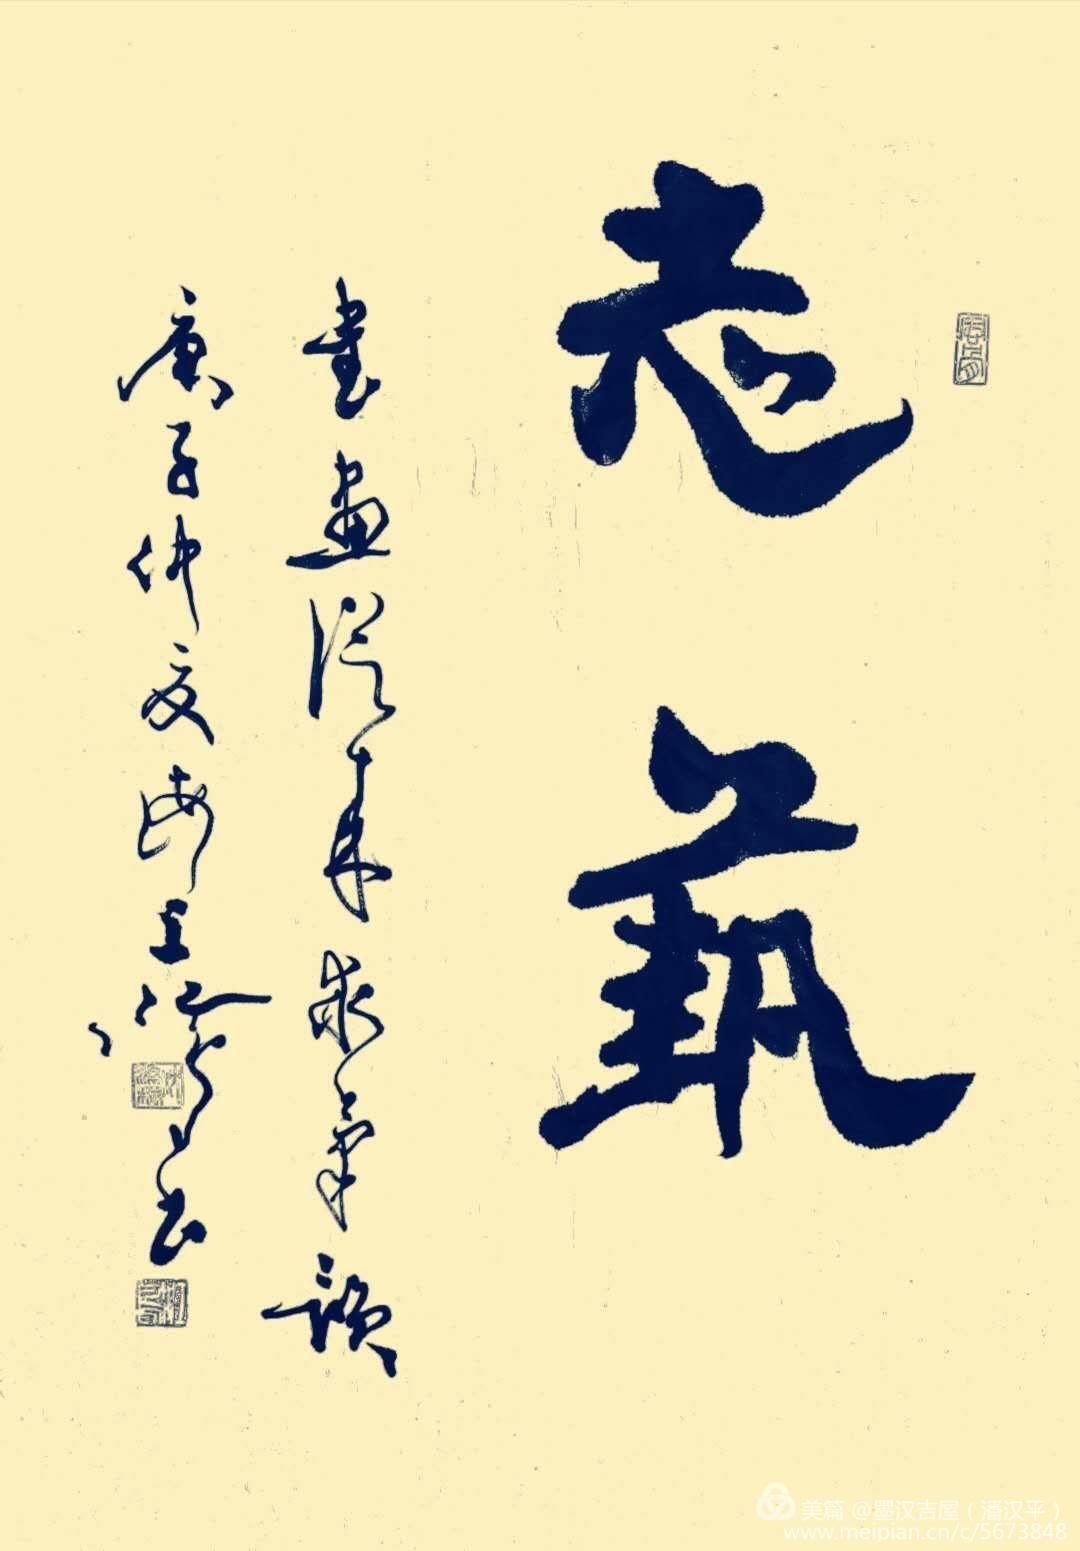 志藝
書畫從來求氣韻
庚子仲夏海上 書
美篇 @墨汉吉屋（潘汉平）
www.meipian.cn/c/5673848